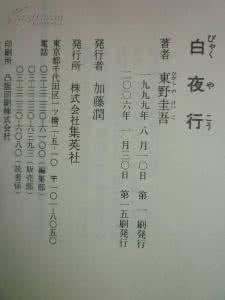 びゃく や こう
白夜行
ひがし の けい ご
著者 東野圭吾
一九九九年 八月一〇日 第一刷発行
二〇〇六年 一月三〇日 第一五刷発行
発行者 加藤潤
発行所 株式会社集英社
東京都千代田区一ツ橋二-五-一〇 〒一〇一-八〇五〇
電話 〇三-三二三〇-六一〇〇(編集部)
〇三-三二三〇-六三九三(販売部)
〇三-三二三〇-六〇八〇(読者係)
印刷所 凸版印刷株式会社